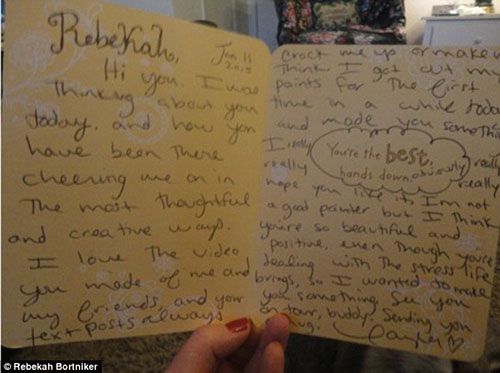 Rebekah,
Jan 11
2015
Hi you. I was
thinking about you
today, and how you
have been there
cheering me on in
the most thoughtful
and creative ways.
I love the video
you made of me and
my friends, and your
text posts always
crack me up or make
think. I got out my
paints for the first
time in a while today
and made you something
I really
really
You're the best,
hands down, obviously
really
really
hope you like it. I'm not
a good painter but I think
you're so beautiful and
positive, even though you're
dealing with the stress life
brings, so I wanted to make
you something. See you
on tour, buddy. Sending you
hug.
Taylor
© Rebekah Bortniker